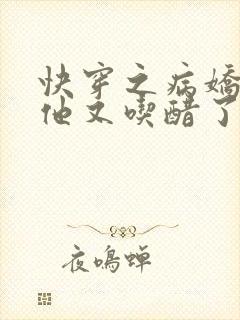 快穿之病嬌
他又喫醋了
夜鳴蟬